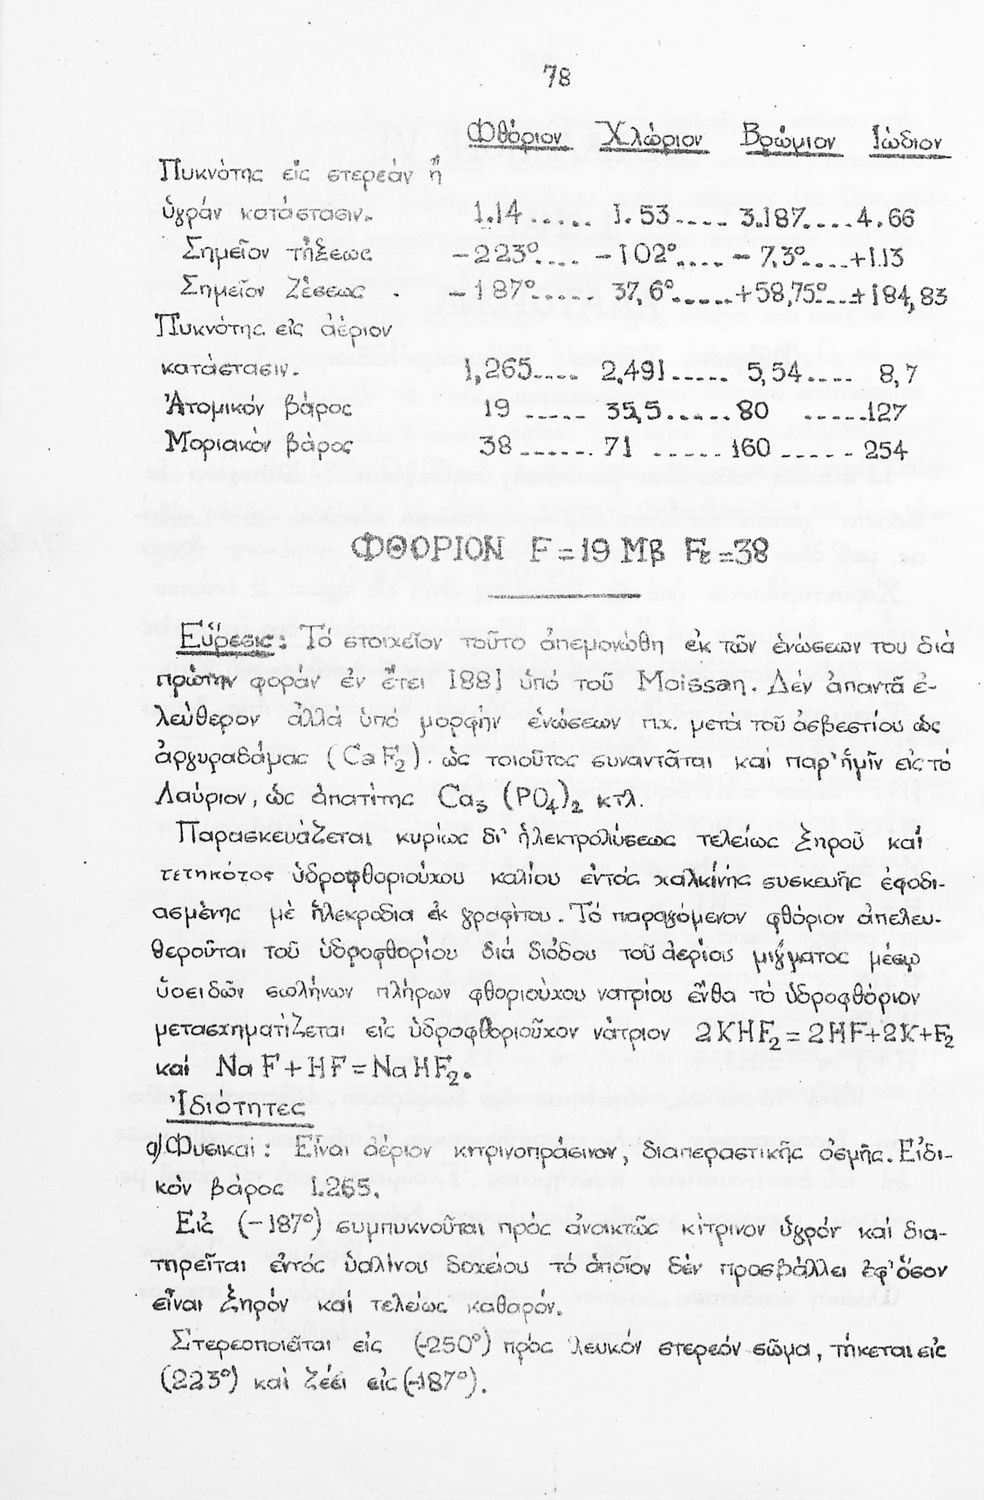 78
Φθόριον Χλώριον Βρώμιον Ἰώδιον
Πυκνότης εἰς στερεάν ἤ
ὑγράν κατάστασιν. 1.14 ..... 1.53.... 3.187....4.66
Σημεῖον τήξεως -223°.... -102°.... -7,3°....+113
Σημεῖον Ζέσεως . -187°..... 37,6°.....+58,75°..+184,83
Πυκνότης εἰς ἀέριον
κατάστασιν. 1,265.... 2,491..... 5,54.... 8,7
Ἀτομικόν βάρος 19 ..... 35,5.....80 ......127
Μοριακόν βάρος 38...... 71 ......160 ..... 254
ΦΘΟΡΙΟΝ F=19 Μβ F2=38
Εὕρεσις: Τό στοιχεῖον τοῦτο ἀπεμονώθη ἐκ τῶν ἑνώσεων του διά
πρώτην φοράν ἐν ἔτει 1881 ὑπό τοῦ Moissan. Δέν ἀπαντᾶ ἐ-
λεύθερον ἀλλά ὑπό μορφήν ἑνώσεων π.χ. μετά τοῦ ἀσβεστίου ὡς
ἀργυραδάμας (CaF2). ὡς τοιοῦτος συναντᾶται καί παρ' ἡμῖν εἰς τό
Λαύριον, ὡς ἀπατίτης Ca3 (PO4)2 κτλ.
Παρασκευάζεται κυρίως δι' ἠλεκτρολύσεως τελείως ξηροῦ καί
τετηκότος ὑδροφθοριούχου καλίου ἐντός χαλκίνης συσκευῆς ἐφοδι-
ασμένης μέ ἠλεκροδια ἐκ γραφίτου. Τό παραγόμενον φθόριον ἀπελευ-
θεροῦται τοῦ ὑδροφθορίου διά διόδου τοῦ ἀερίου μίγματος μέσῳ
ὑοειδῶν σωλήνων πλήρων φθοριούχου νατρίου ἔνθα τό ὑδροφθόριον
μετασχηματίζεται εἰς ὑδροφθοριοῦχον νάτριον 2KHF2=2HF+2K+F2
καί NaF+HF=NaHF2.
Ἰδιότητες
α)Φυσικαί: Εἶναι ἀέριον κιτρινοπράσινον, διαπεραστικῆς ὀσμῆς. Εἰδι-
κόν βάρος 1.265.
Εἰς (-187°) συμπυκνοῦται πρός ἀνοικτῶς κίτρινον ὑγρόν καί δια-
τηρεῖται ἐντός ὑαλίνου δοχείου τό ὁποῖον δέν προσβάλλει ἐφ' ὅσον
εἶναι ξηρόν καί τελείως καθαρόν.
Στερεοποιεῖται εἰς (-250°) πρός λευκόν στερεόν σῶμα, τήκεται εἰς
(223°) καί ζέει εἰς (-187°).